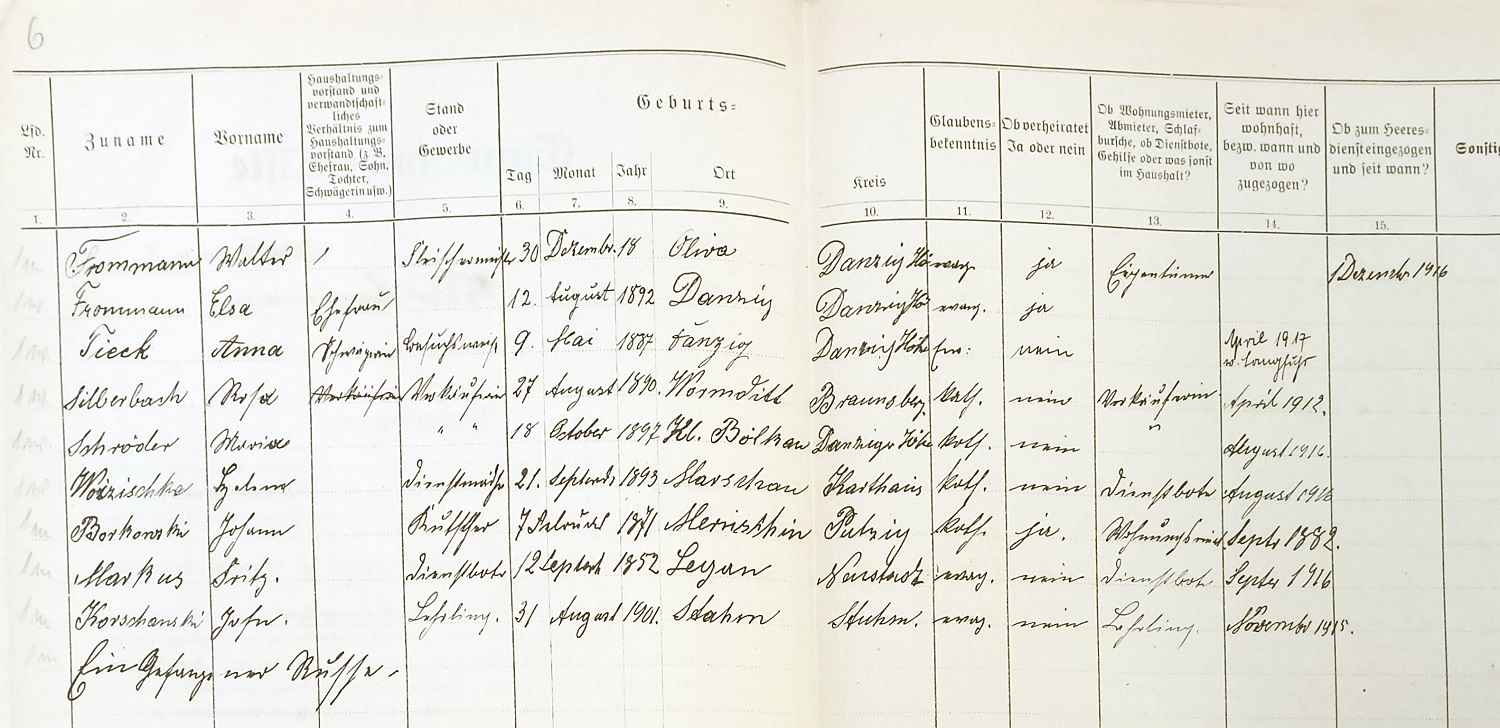 6
Lfd. Nr. Zuname Vorname Haushaltungs-vorstand und verwandtschaft-liches Verhältnis zum Haushaltungs-vorstand (z. B. Ehefrau, Sohn, Tochter, Schwägerin usw.) Stand oder Gewerbe Geburts= Glaubens-bekenntnis Ob verheiratet Ja oder nein Ob Wohnungsmieter, Abmieter, Schlaf-bursche, ob Dienstbote, Gehilfe oder was sonst im Haushalt? Seit wann hier wohnhaft, bezw. wann und von wo zugezogen? Ob zum Heeres-dienst eingezogen und seit wann? Sonstig
Tag Monat Jahr Ort Kreis
1. 2. 3. 4. 5. 6. 7. 8. 9. 10. 11. 12. 13. 14. 15.
Frommann Walter / Fleischermeister 30 Dezembr. 18 Oliva Danzig Hö evang. ja Eigentümer 1 Dezembr. 1916
Frommann Elsa Ehefrau 12. August 1892 Danzig Danzig Hö evang. ja
Tieck Anna Schwägerin 9. Mai 1887 Danzig Danzig Höhe nein April 1917 v. Langfuhr
Silberbach Rosa Verkäuferin Verkäuferin 27 August 1890. Wormditt Braunsberg kath. nein Verkäuferin April 1912.
Schröder Maria " " 18 October 1897 Kl. Bölkau Danziger Höhe kath. nein " August 1916.
Woizischke Helene Dienstmädch 21. Septembr 1893 Marschau Karthaus kath. nein Dienstbote August 1916
Borkowski Johann Kutscher 7 Februar 1871 Putzig kath. ja. Wohnungsmiet Septr 1882.
Markus Fritz. Dienstbote 12 Septemb 1852 Legan Neustadt evang. nein Dienstbote Septer 1916
Korschanski Joh. Lehrling. 31 August 1901. Stahm Stuhm. evang. nein Lehrling. Novembr 1915.
Ein Gefangener Russe.